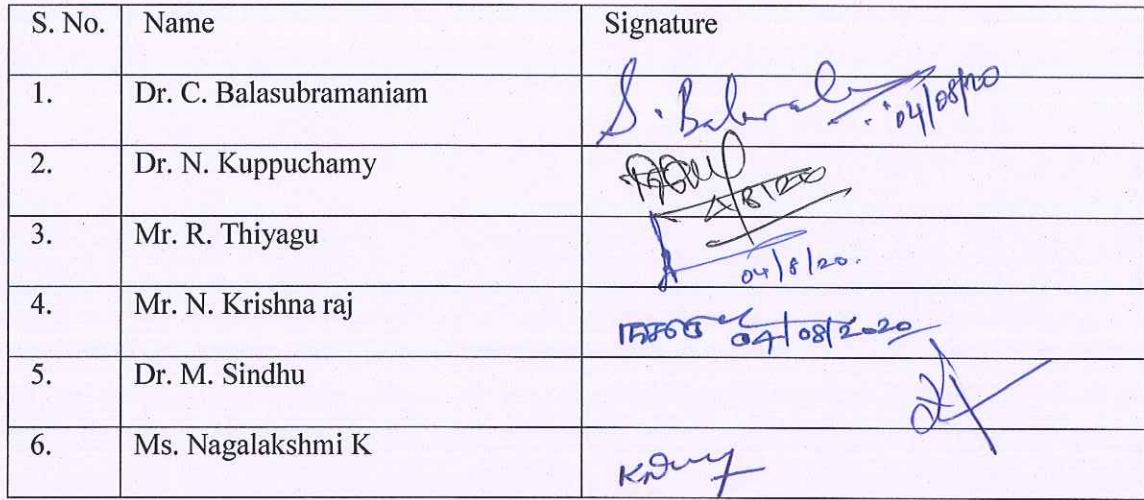 S. No. Name Signature
1. Dr. C. Balasubramaniam 04/08/20
2. Dr. N. Kuppuchamy
3. Mr. R. Thiyagu 04/8/20.
4. Mr. N. Krishna raj 04/08/2020
5. Dr. M. Sindhu
6. Ms. Nagalakshmi K